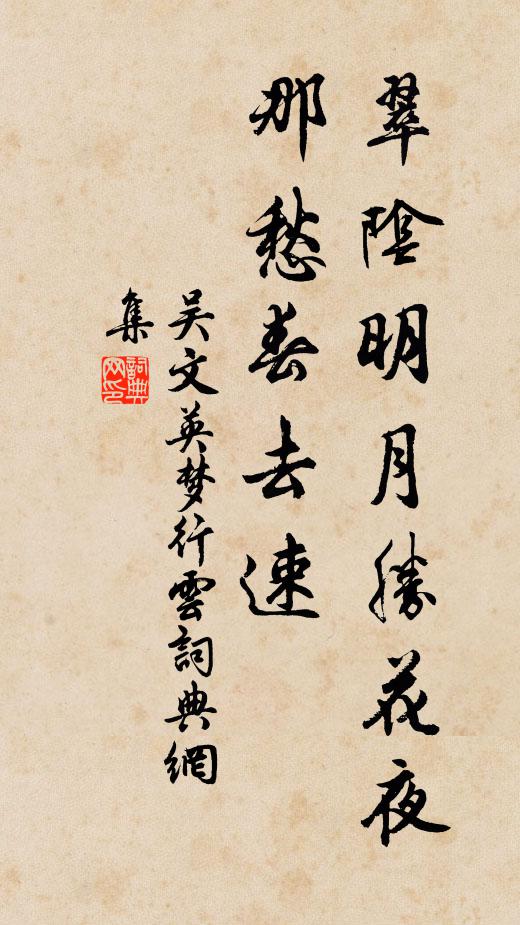 翠陰明月勝花夜
那愁春去速
吴文英梦行雲詞典網
集
詞典网印